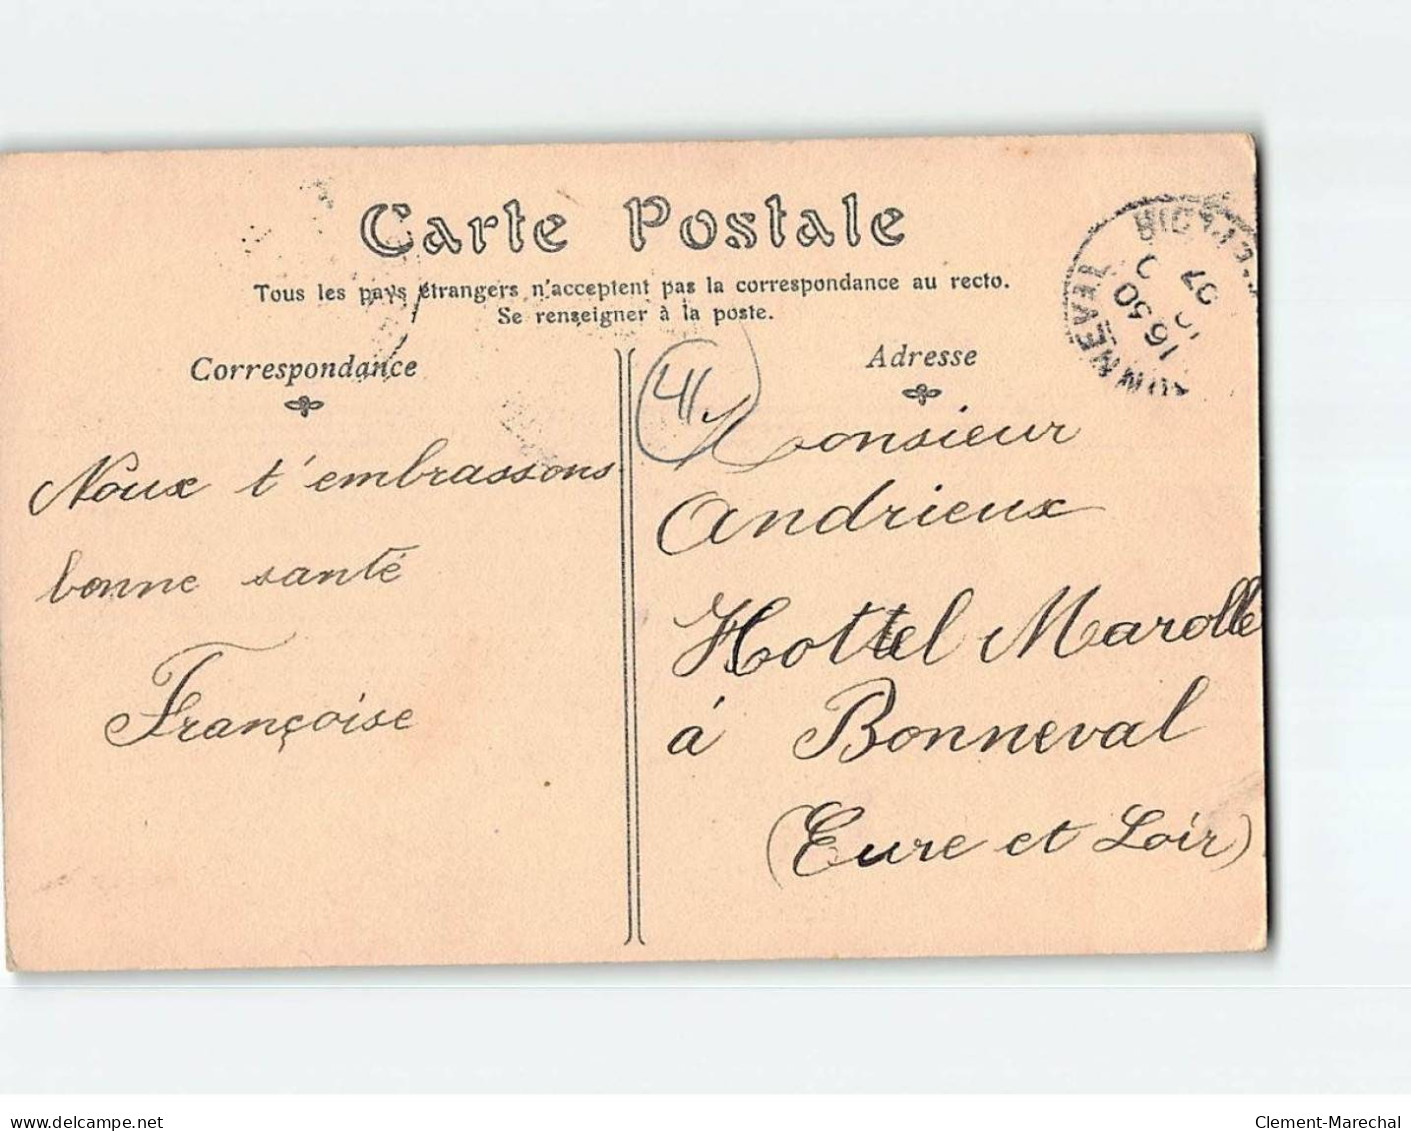 Carte Postale
Tous les pays étrangers n'acceptent pas la correspondance au recto.
Se renseigner à la poste.
Correspondance
Adresse
41
Noux t'embrassons
bonne santé
Françoise
Monsieur
Andrieux
Hottel Marolle
à Bonneval
(Eure et Loir)
16 30
07
delcampe.net
Clement-Marechal